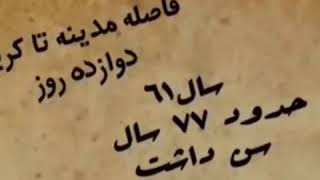 فاصله مدینه تا
دوازده روز
سال ۶۱
حدود ۷۷ سال
سن داشت